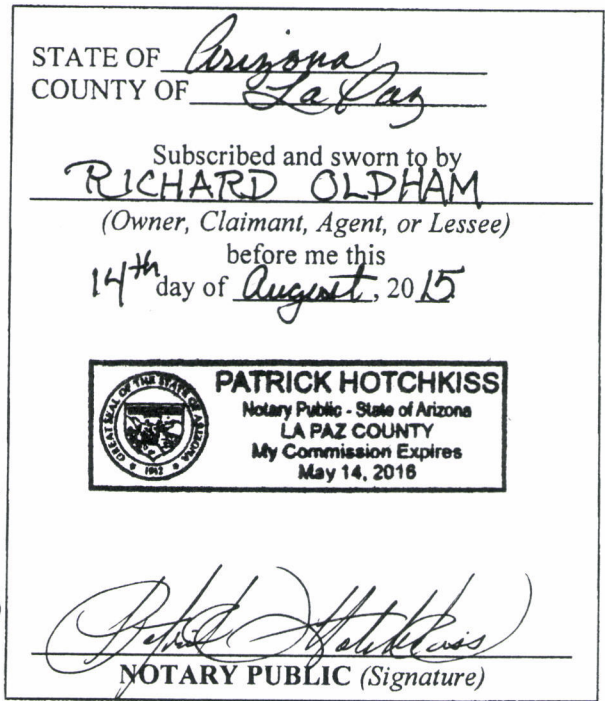 STATE OF Arizona
COUNTY OF La Paz
Subscribed and sworn to by
RICHARD OLDHAM
(Owner, Claimant, Agent, or Lessee)
before me this
14th day of August, 2015
GREAT SEAL OF THE STATE OF ARIZONA
1912
PATRICK HOTCHKISS
Notary Public - State of Arizona
LA PAZ COUNTY
My Commission Expires
May 14, 2016
Patrick Hotchkiss
NOTARY PUBLIC (Signature)